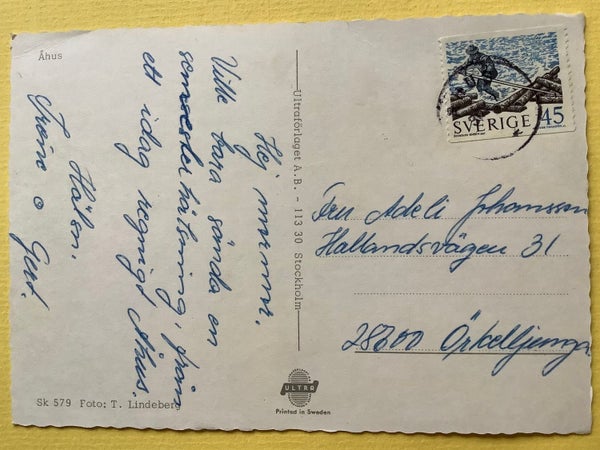 Åhus
Hej mormor.
Ville bara sända en
sommarhälsning, från
ett idag regnigt Åhus.
Hälsn.
Irene o Gert.
Sk 579 Foto: T. Lindeberg
Ultraförlaget A.B. - 113 30 Stockholm
SVERIGE 45
Fru Adeli Johansson
Hallandsvägen 31
28200 Örkelljunga
ULTRA
Printed in Sweden